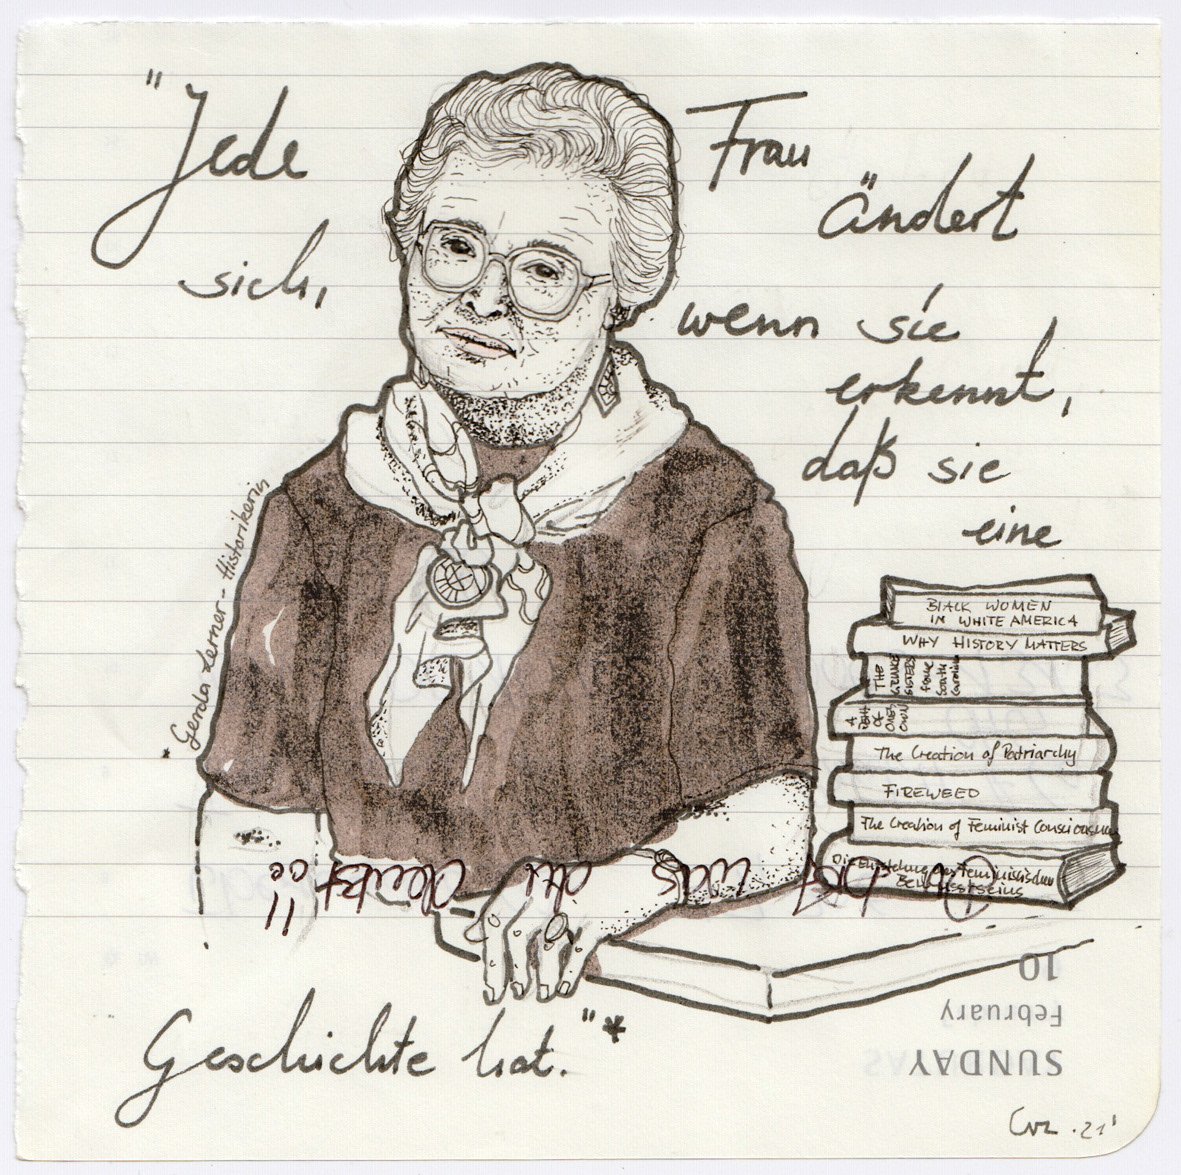 "Jede Frau
ändert
sich,
wenn sie
erkennt,
daß sie
eine
Geschichte hat."*
* Gerda Lerner - Historikerin
BLACK WOMEN
IN WHITE AMERICA
WHY HISTORY MATTERS
THE
GRIMKE
SISTERS
from
South
Carolina
A
DEATH
OF
ONE'S
OWN
The Creation of Patriarchy
FIREWEED
The Creation of Feminist Consciousness
Die Entstehung des feministischen
Bewusstseins
was du denkst
10
February
SUNDAY
21'